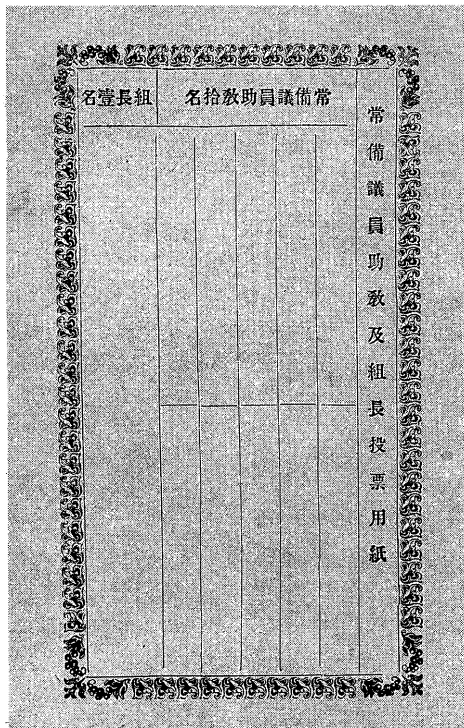 常備議員助敎及組長投票用紙
常備議員助敎拾名
組長壹名